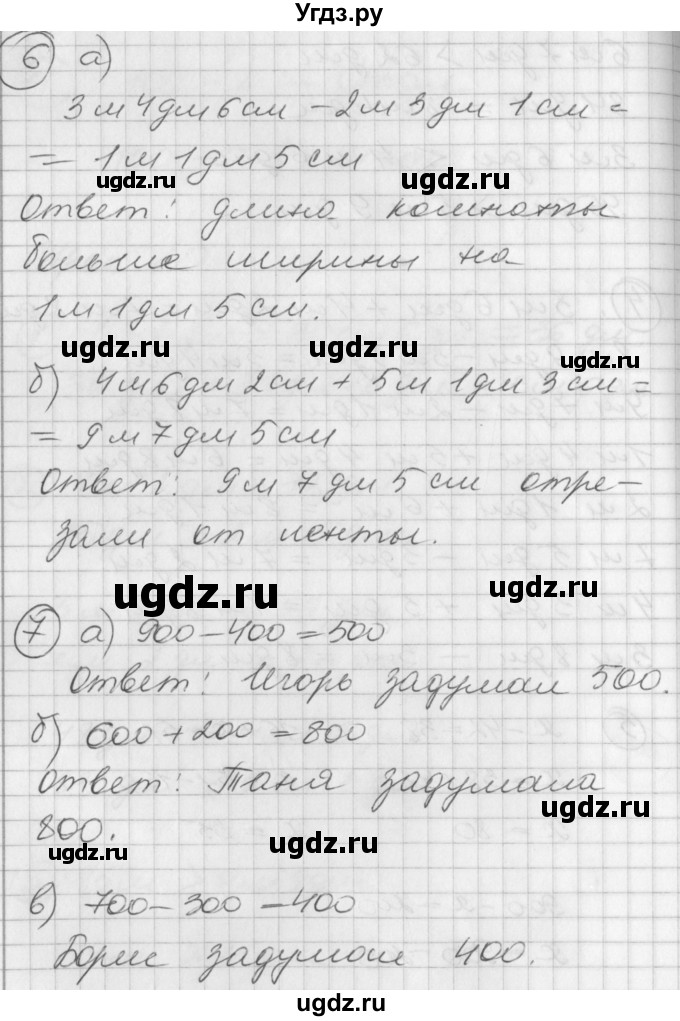 Угдз.ру
6 а)
3м 4дм 6см – 2м 3дм 1см =
= 1м 1дм 5см
ugdz.ru ugdz.ru
Ответ: длина комнаты
больше ширины на
1м 1дм 5см.
ugdz.ru ugdz.ru ugdz.ru
б) 4м 6дм 2см + 5м 1дм 3см =
= 9м 7дм 5см
Ответ: 9м 7дм 5см отре-
ugdz.ru ugdz.ru
зали от ленты.
ugdz.ru ugdz.ru
7 а) 900 – 400 = 500
Ответ: Игорь задумал 500.
ugdz.ru ugdz.ru
б) 600 + 200 = 800
Ответ: Таня задумала
ugdz.ru
800.
ugdz.ru ugdz.ru
в) 700 – 300 – 400
Борис задумал 400.
ugdz.ru ugdz.ru
ugdz.ru